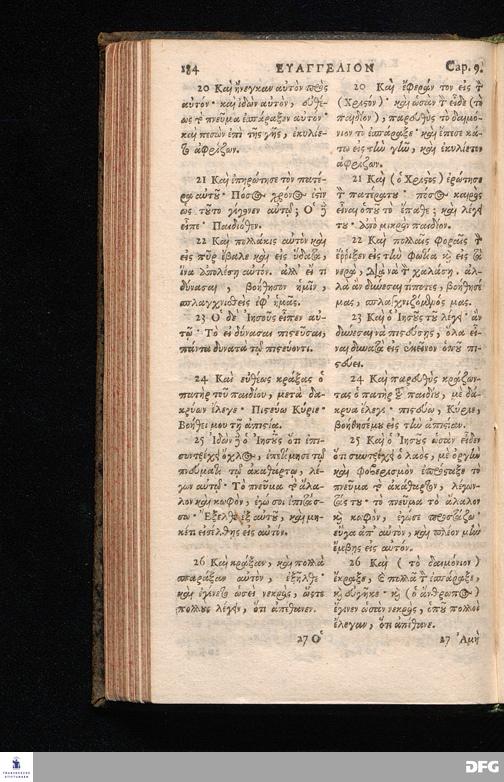 184 ΕΥΑΓΓΕΛΙΟΝ Cap. 9.
20 Καὶ ἤνεγκαν αὐτὸν πρὸς
αὐτόν· καὶ ἰδὼν αὐτὸν, εὐθέ-
ως τὸ πνεῦμα ἐσπάραξεν αὐτόν·
καὶ πεσὼν ἐπὶ τῆς γῆς, ἐκυλίε-
το ἀφρίζων.
21 Καὶ ἐπηρώτησε τὸν πατέ-
ρα αὐτοῦ· Πόσος χρόνος ἐστὶν
ὡς τοῦτο γέγονεν αὐτῷ; Ὁ δὲ
εἶπε· Παιδιόθεν.
22 Καὶ πολλάκις αὐτὸν καὶ
εἰς πῦρ ἔβαλε καὶ εἰς ὕδατα,
ἵνα ἀπολέσῃ αὐτόν. ἀλλ' εἴ τι
δύνασαι, βοήθησον ἡμῖν,
σπλαγχνισθεὶς ἐφ' ἡμᾶς.
23 Ὁ δὲ Ἰησοῦς εἶπεν αὐ-
τῷ· Τὸ εἰ δύνασαι πιστεῦσαι,
πάντα δυνατὰ τῷ πιστεύοντι.
24 Καὶ εὐθέως κράξας ὁ
πατὴρ τοῦ παιδίου, μετὰ δα-
κρύων ἔλεγε· Πιστεύω Κύριε·
Βοήθει μου τῇ ἀπιστίᾳ.
25 Ἰδὼν δὲ ὁ Ἰησοῦς ὅτι ἐπι-
συντρέχει ὄχλος, ἐπετίμησε τῷ
πνεύματι τῷ ἀκαθάρτῳ, λέ-
γων αὐτῷ· Τὸ πνεῦμα τὸ ἄλα-
λον καὶ κωφὸν, ἐγώ σοι ἐπιτάσ-
σω· Ἔξελθε ἐξ αὐτοῦ, καὶ μη-
κέτι εἰσέλθῃς εἰς αὐτόν.
26 Καὶ κράξαν, καὶ πολλὰ
σπαράξαν αὐτὸν, ἐξῆλθε·
καὶ ἐγένετο ὡσεὶ νεκρὸς, ὥστε
πολλοὺς λέγειν, ὅτι ἀπέθανεν.
27 Ὁ
20 Καὶ ἔφεράν τον εἰς τὸν
(Χριστόν)· καὶ ὡσὰν τὸν εἶδε (τὸ
παιδίον), παρευθὺς τὸ δαιμό-
νιον τὸ ἐσπάραξε· καὶ ἔπεσε κά-
τω εἰς τὴν γῆν, καὶ ἐκυλίετον
ἀφρίζων.
21 Καὶ (ὁ Χριστὸς) ἐρώτησε
τὸν πατέρα του· πόσος καιρὸς
εἶναι ὁποῦ τὸ ἔπαθε; καὶ λέγει
του· Ἀπὸ μικρὸν παιδίον.
22 Καὶ πολλαῖς φοραῖς τὸν
ἔρριξεν εἰς τὴν φωτία καὶ εἰς τὰ
νερὰ, διὰ νὰ τὸν χαλάσῃ. ἀλ-
λὰ ἂν δύνεσαι τίποτες, βοήθησέ
μας, σπλαγχνιζόμενός μας.
23 Καὶ ὁ Ἰησοῦς τοῦ λέγει· ἂν
δύνεσαι νὰ πιστεύσῃς, ὅλα εἶ-
ναι δυνατὰ εἰς ἐκεῖνον ὁποῦ πι-
στεύει.
24 Καὶ παρευθὺς κράζων-
τας ὁ πατὴρ τοῦ παιδίου, μὲ δά-
κρυα ἔλεγε· πιστεύω, Κύριε,
βοήθησέ μου εἰς τὴν ἀπιστίαν.
25 Καὶ ὁ Ἰησοῦς ὡσὰν εἶδεν
ὅτι συντρέχει ὁ λαὸς, μὲ ὀργὴν
καὶ φοβερισμὸν ἐπρόσταξε τὸ
πνεῦμα τὸ ἀκάθαρτον, λέγων-
τάς του· τὸ πνεῦμα τὸ ἄλαλον
καὶ κωφὸν, ἐγὼ σὲ προστάζω·
εὔγα ἀπ' αὐτὸν, καὶ πλέον μὴν
ἔμβῃς εἰς αὐτόν.
26 Καὶ (τὸ δαιμόνιον)
ἔκραξε, καὶ πολλὰ τὸν ἐσπάραξε,
καὶ εὐγῆκε· καὶ (ὁ ἄνθρωπος)
ἔγινεν ὡσὰν νεκρὸς, ὁποῦ πολλοὶ
ἔλεγαν, ὅτι ἀπέθανε.
27 Ἀμὴ
FRANCKESCHE
STIFTUNGEN
DFG